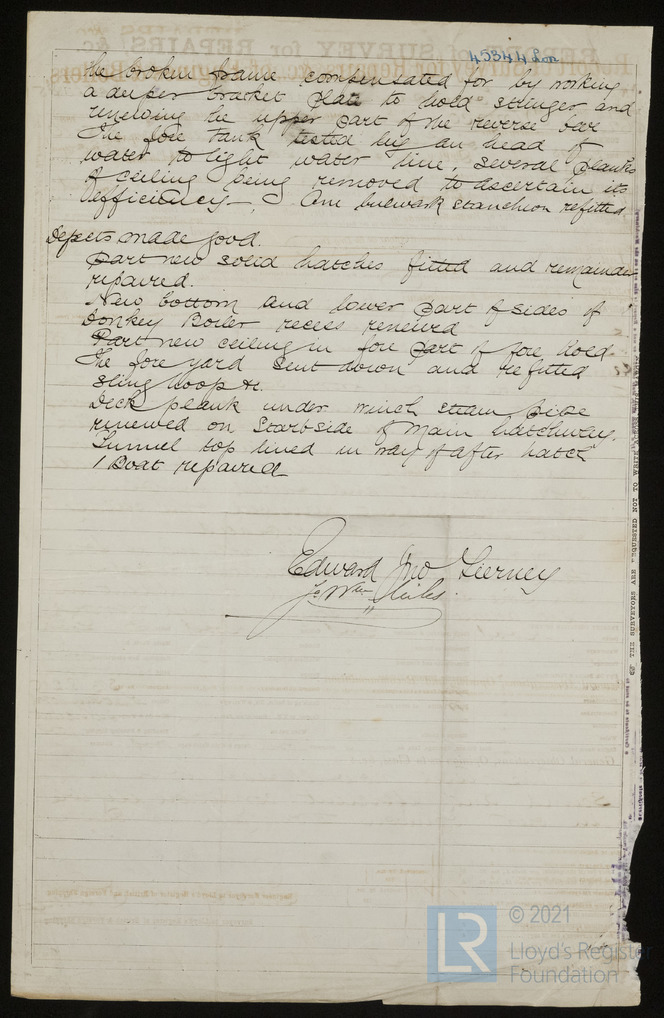 45344 Lon
the broken frame compensated for by working
a deeper bracket plate to hold stringer and
renewing the upper part of the reverse bar
The fore tank tested by an head of
water to light water line, several planks
of ceiling being removed to ascertain its
efficiency. One bulwark stanchion refitted
Defects made good.
Part new solid hatches fitted and remainder
repaired.
New bottom and lower part of sides of
Donkey Boiler recess renewed
Part new ceiling in fore part of fore hold
The fore yard sent down and refitted
sling hoop &c.
Deck plank under winch steam pipe
renewed on Starbside of Main hatchway.
Tunnel top lined in way of after hatch
1 Boat repaired
Edward Jno Tierney
OF THE SURVEYORS ARE REQUESTED NOT TO WRITE
LR
© 2021
Lloyd's Register
Foundation